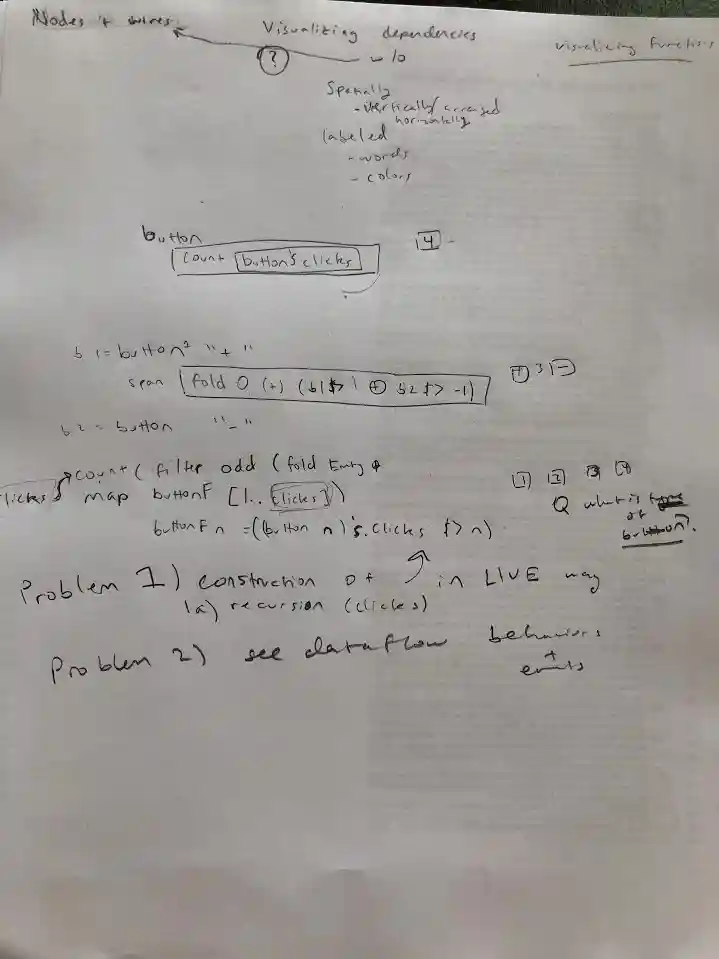 Nodes + wires
Visualizing dependencies
visualizing functions
?
w/o
Spatially
- vertically/arranged
horizontally
labeled
- words
- colors
button
count button's clicks
4
b1 = button "+"
span fold 0 (+) (b1 $> 1 ⊕ b2 $> -1)
+ 3 -
b2 = button "-"
clicks count (filter odd (fold Empty ⊕
map buttonF [1.. clicks]))
1 2 3 4
Q what is
of
button?
buttonF n = ((button n)'s.clicks $> n)
Problem 1) construction of in LIVE way
1a) recursion (clicks)
Problem 2) see dataflow behaviors
+
events